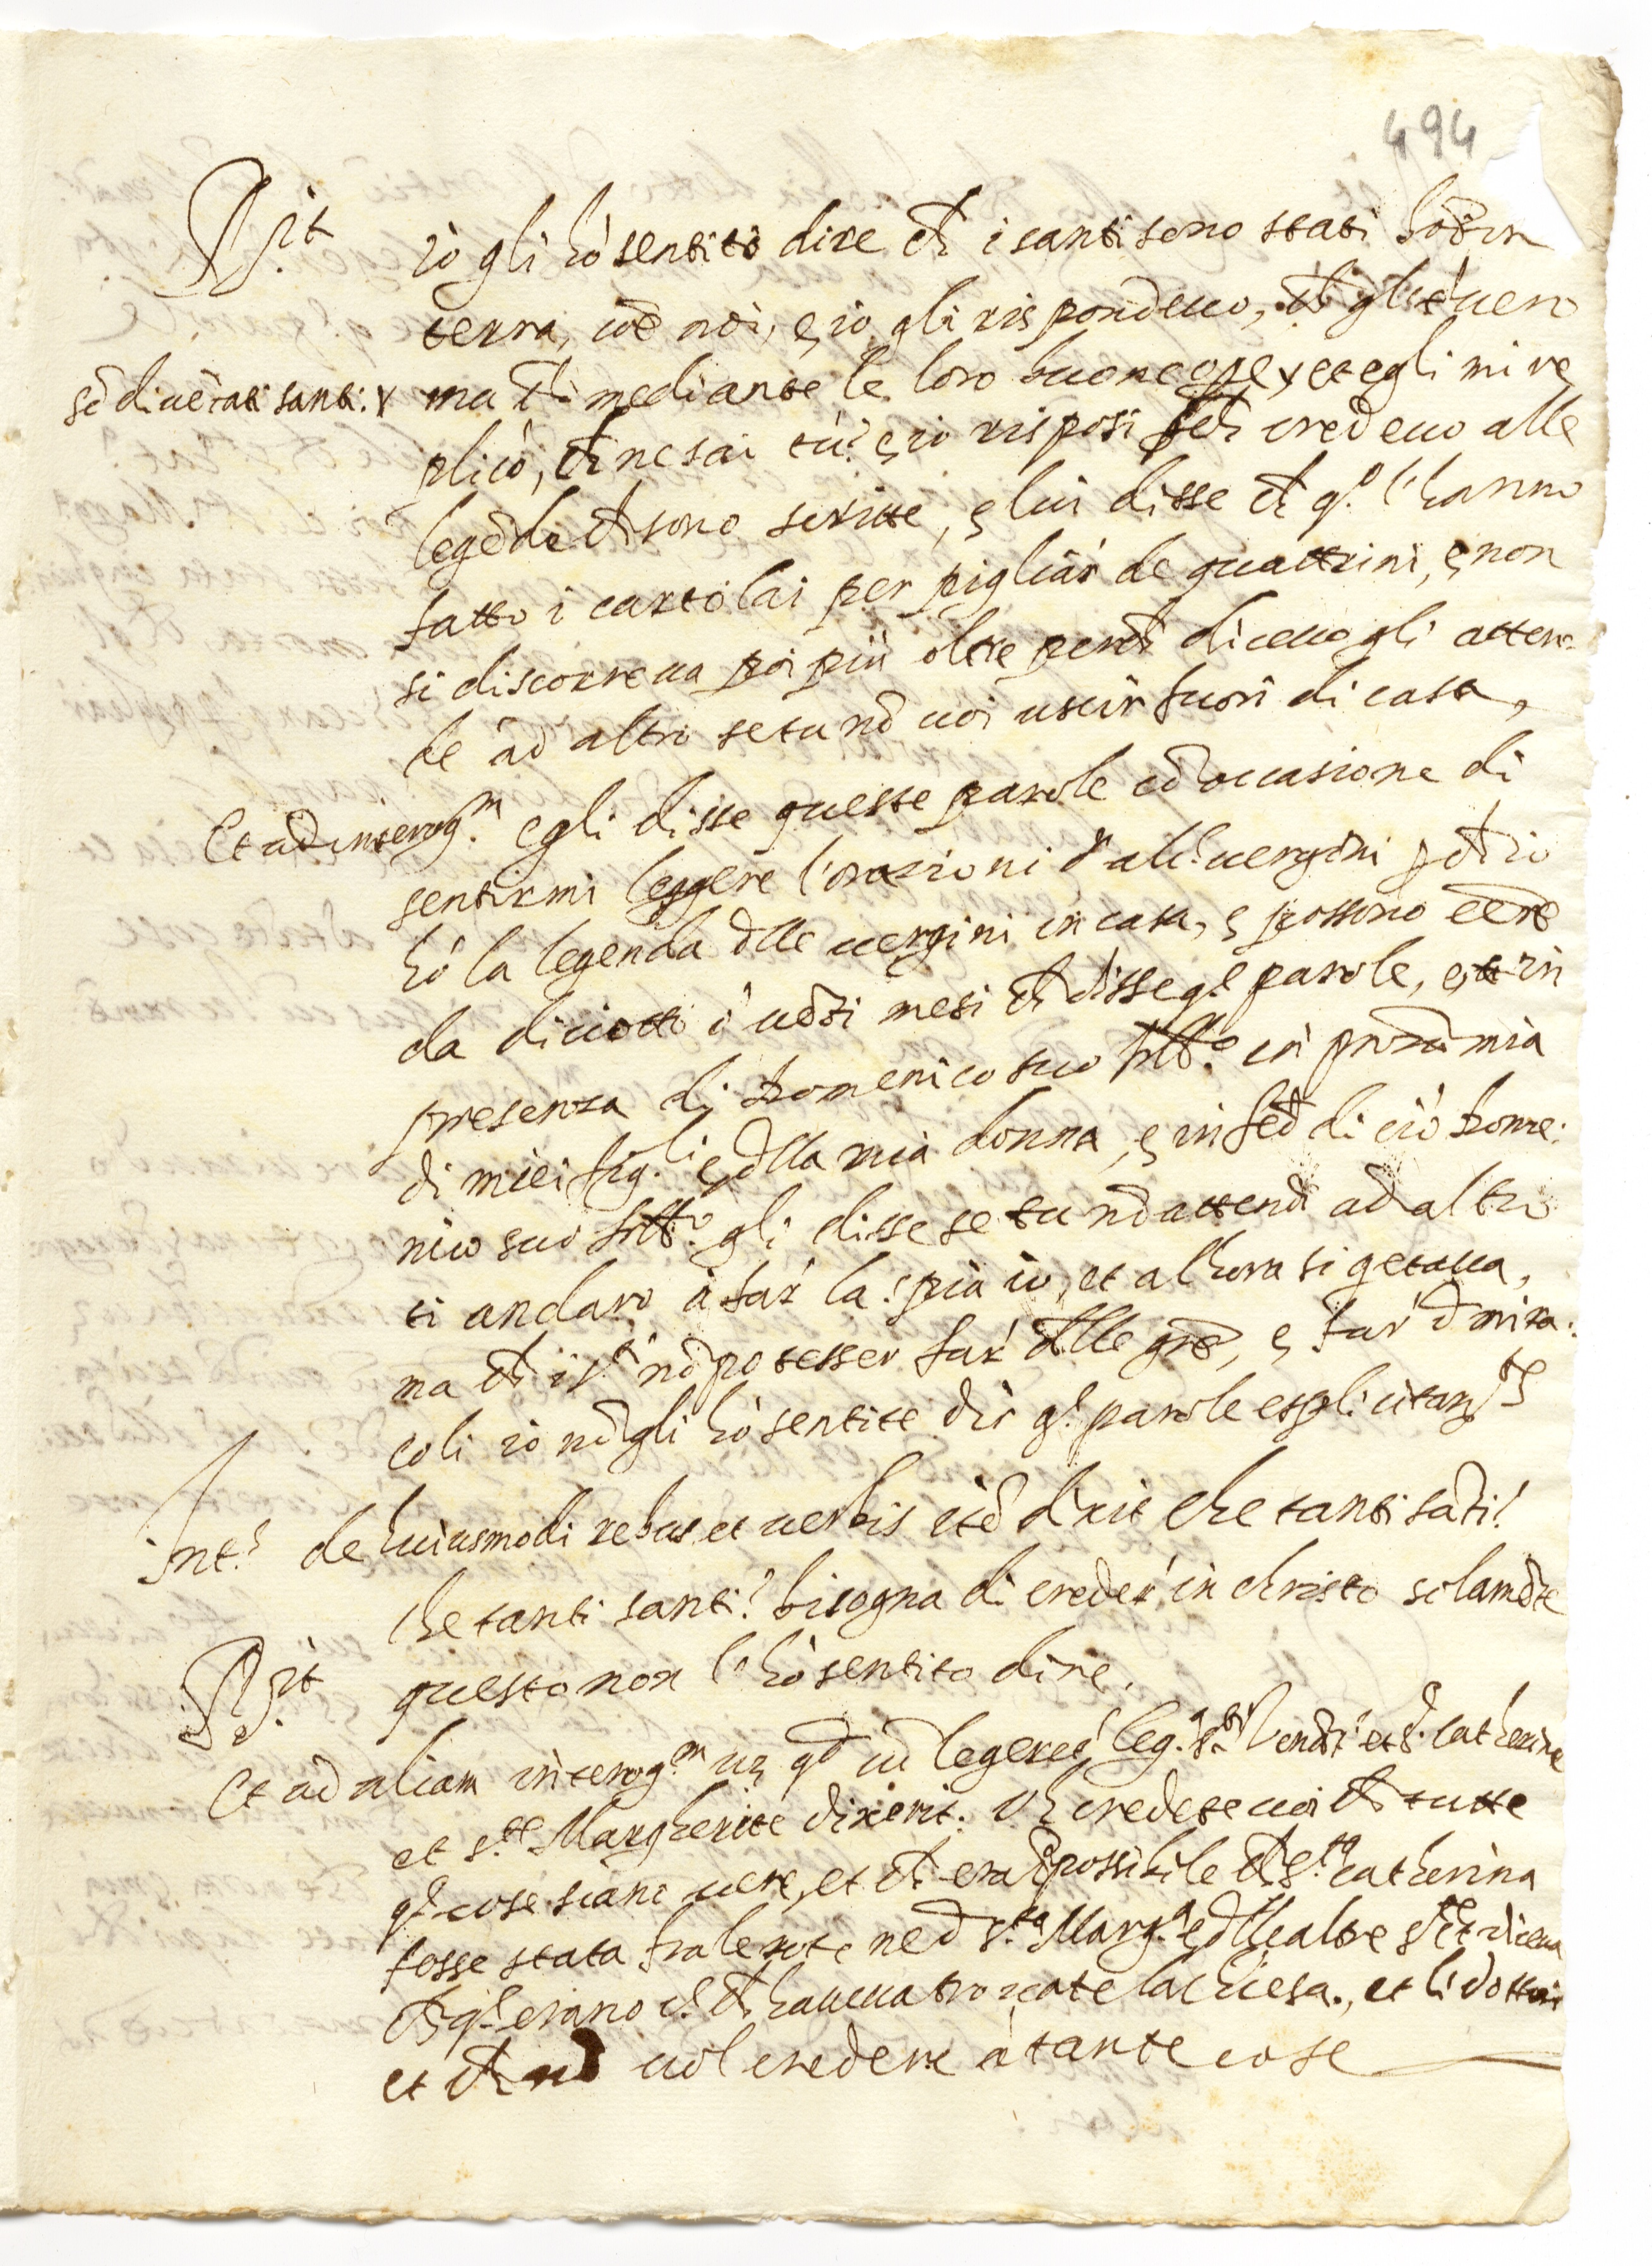 494
R.it io gli hò sentito dire ch̃ i santi sono stati hõi ĩn
terra, cõe noi, e io gli rispondeuo, ch̃ gli è uero
sõ diuẽtati santi. x ma ch̃ mediante le loro buone ope x et egli mi re
plicò, ch̃ ne sai tù? e io risposi p̃ch̃ credeuo alle
legẽde ch̃ sono scritte, e lui disse ch̃ q.o l'hanno
fatto i cartolai per pigliar de quattrini, e non
si discorreua poi più oltre perch̃ diceuo gli atten-
de ad altro se tu nõ uoi uscir fuori di casa,
Et ad interrog.m egli disse queste parole cõ occasione di
sentirmi leggere l'orazioni d'alc.e uergini p̃ch̃ io
hò la legenda d̃lle uergini in casa, e possono eẽre
da diciotto ò uẽti mesi ch̃ disse q.e parole, et in
presenza di Domenico suo f̃llo in pñza mia
di miei fig.li e d̃lla mia donna, e in fed̃ di ciò Dome:
nico suo f̃llo gli disse se tu nõ attendi ad altro
ti andarò à far la spia io, et alhora si getaua,
ma ch̃ i s.ti nõ potesser far d̃lle grẽ, e far d̃ mira:
coli io nõ gli hò sentite dir q.e parole esplicitam.te
Int.s de huiusmodi rebus et uerbis itẽ dixit che tanti sãti?
che tanti santi? bisogna di creder in christo solamẽte
R.it questo non l'hò sentito dire.
Et ad aliam interrog.m uz q̃d cũ legeret leg. et s. Catherine
et s.te Margherite dixerit. Oh credete uoi ch̃ tutte
q.e cose siano uere, et ch̃ era ĩpossibile ch̃ s.ta Catherina
fosse stata fra le rote ne d̃ s.ta Marg.a e d̃lle altre s.te et diceua
ch̃ q.e erano c. ch̃ haueua trouate la chiesa, et li dottori
et ch̃ nõ uol credere à tante cose